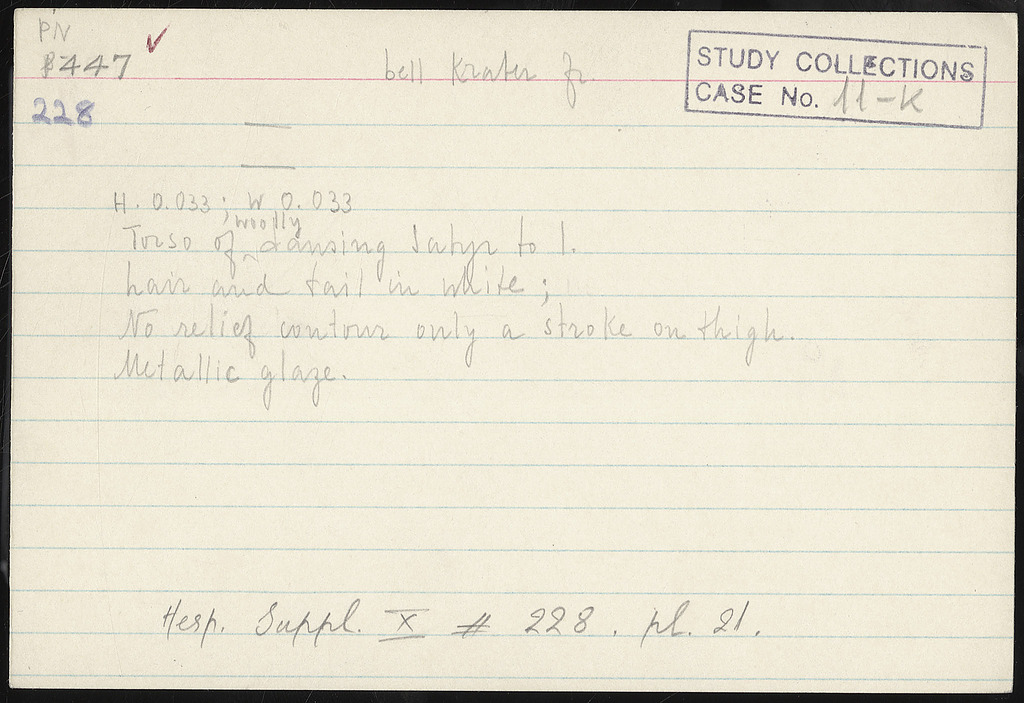 PN
P447 ✓
bell Krater fr.
STUDY COLLECTIONS
CASE No. 11-K
228
H. 0.033; W 0.033
Torso of woolly dansing Satyr to l.
hair and tail in white;
No relief contour only a stroke on thigh.
Metallic glaze.
Hesp. Suppl. X # 228. pl. 21.